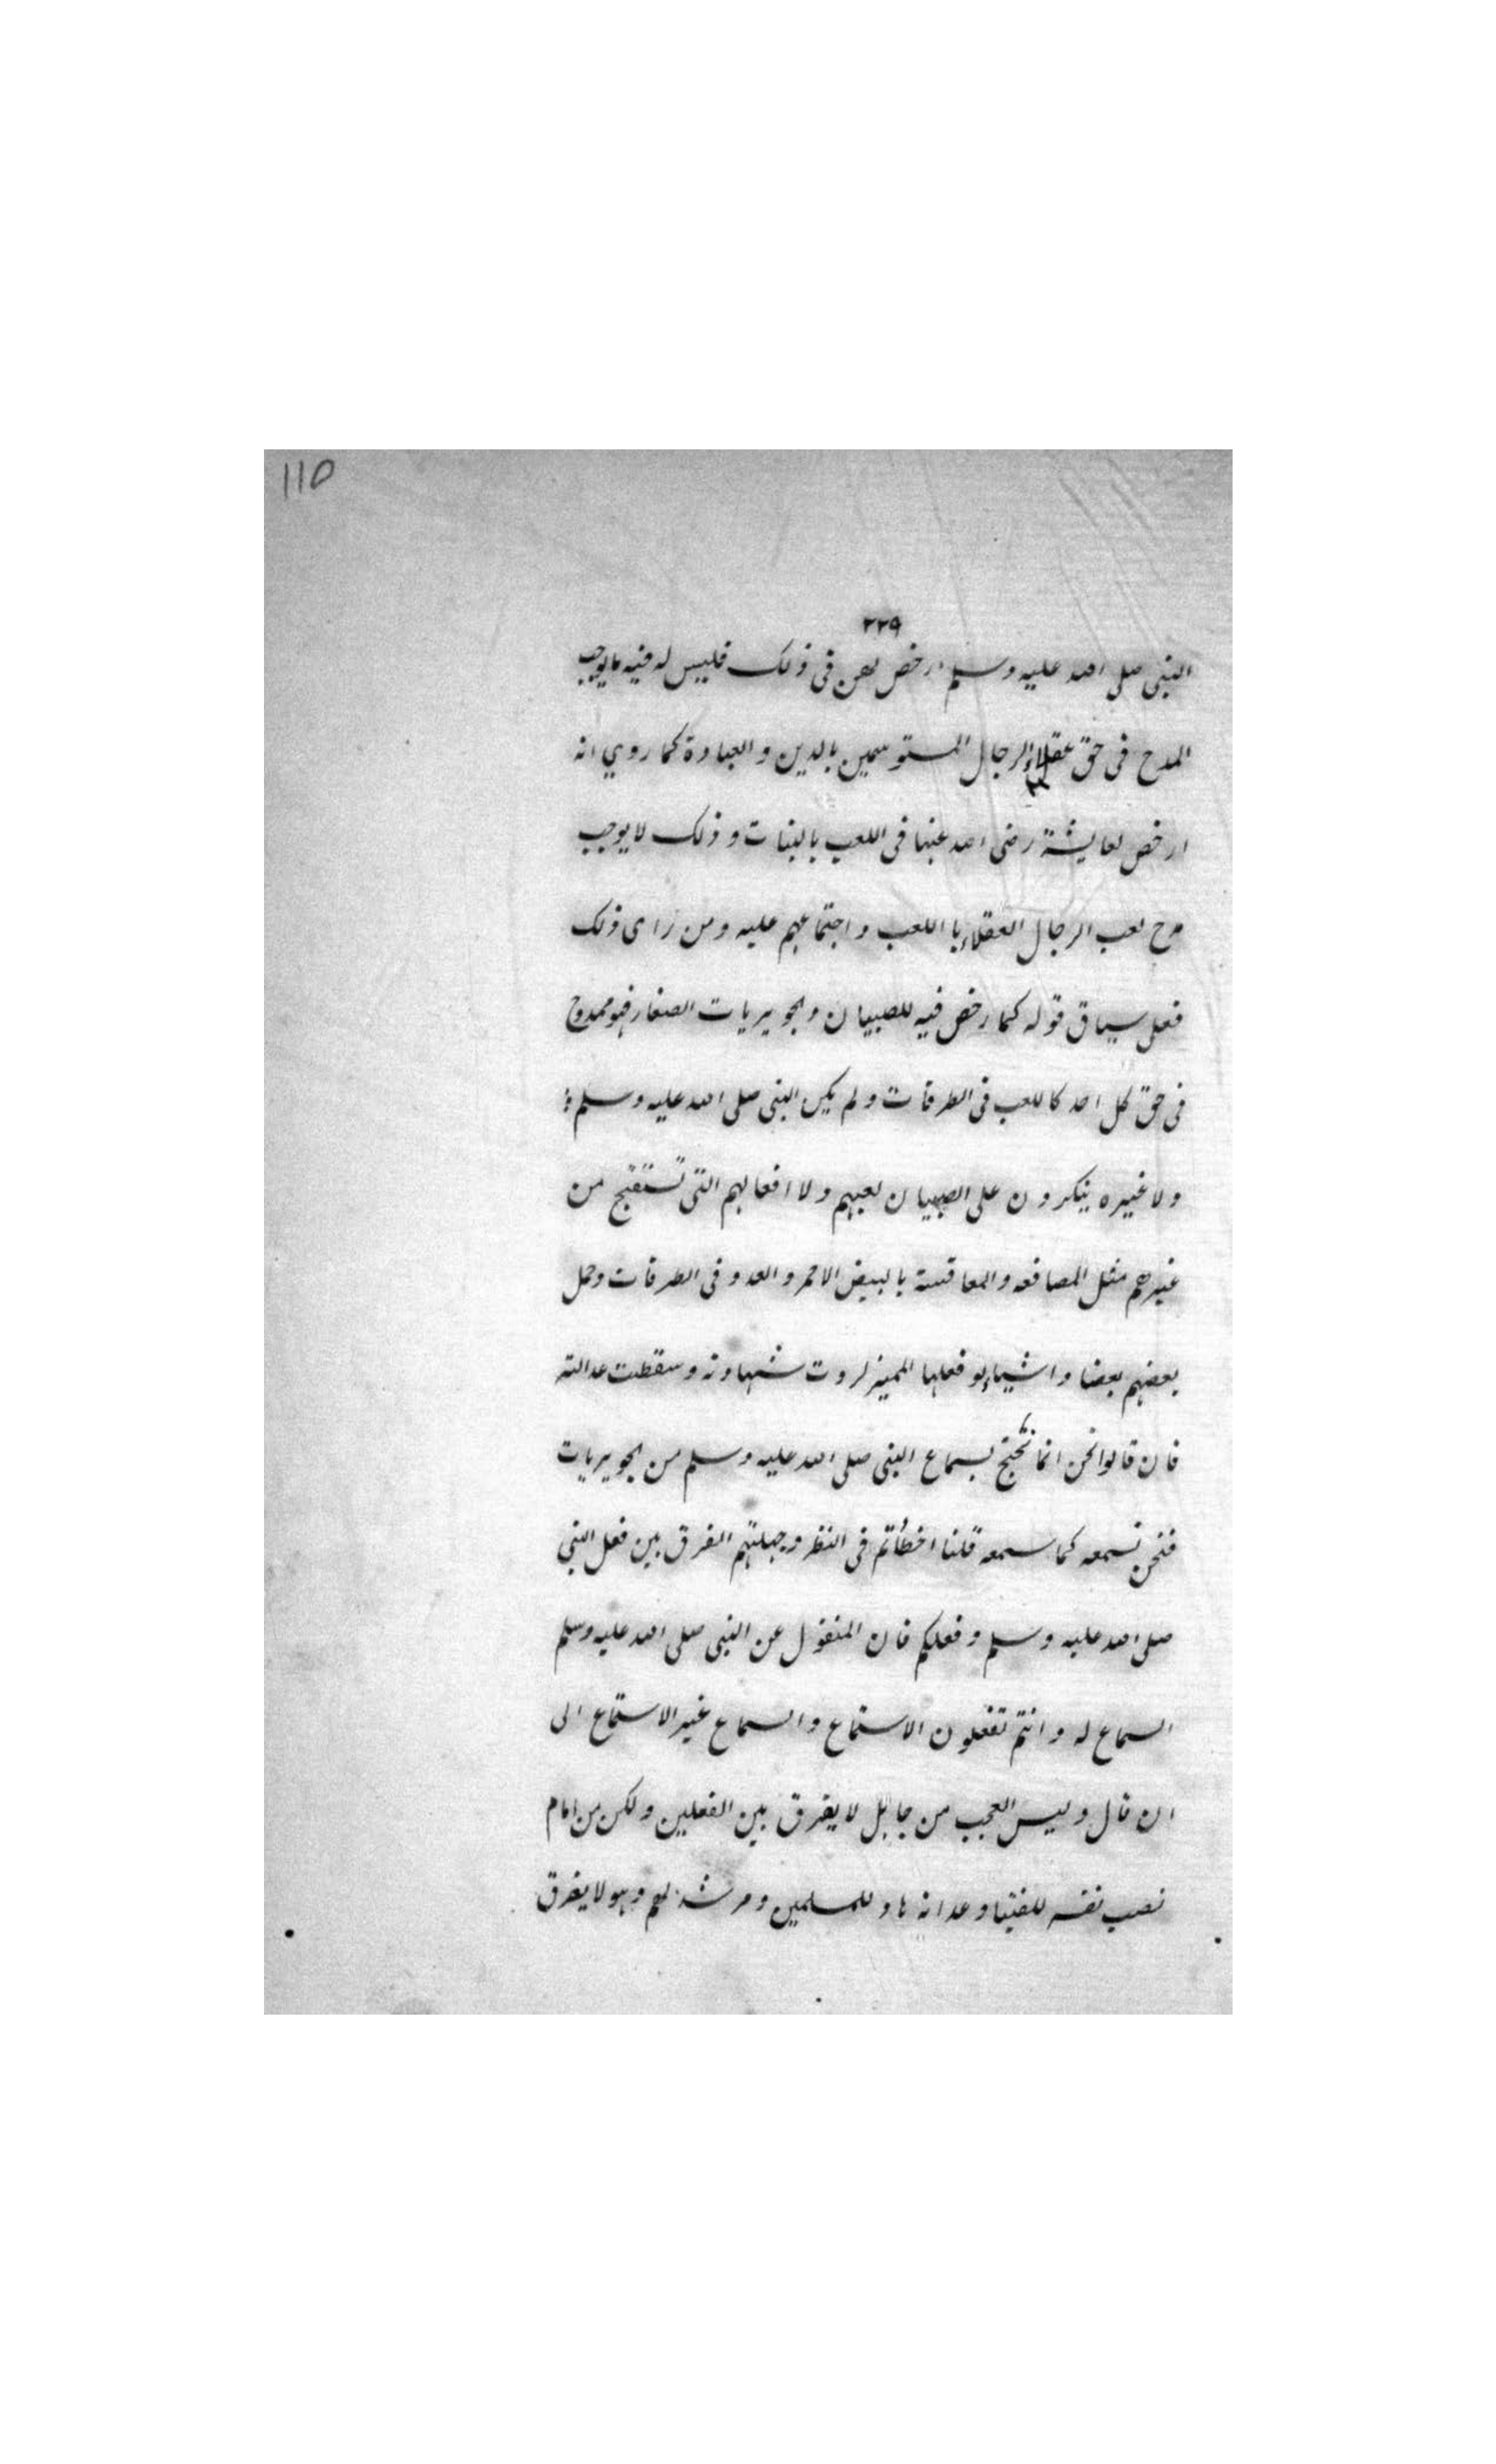 ١١٥
٢٢٩
النبى صلى الله عليه وسلم ارخص لهن فى ذلك فليس له فيه ما يوجب
المدح فى حق عقلاء الرجال المتوسمين بالدين والعبادة كما روي انه
ارخص لعايشة رضى الله عنها فى اللعب بالبنات وذلك لا يوجب
مدح لعب الرجال العقلاء با اللعب واجتماعهم عليه ومن راى ذلك
فعلى سياق قوله كما رخص فيه للصبيان والجويريات الصغار فهو ممدوح
فى حق كل احد كاللعب فى الطرقات ولم يكن النبى صلى الله عليه وسلم
ولا غيره ينكرون على الصبيان لعبهم ولا افعالهم التى تستقبح من
غيرهم مثل المصافعه والمعاقسة بالبيض الاحمر والعدو فى الطرقات وحمل
بعضهم بعضا واشياء لو فعلها المميز لردت شهادته وسقطت عدالته
فان قالوا نحن انما نحتج بسماع النبى صلى الله عليه وسلم من الجويريات
فنحن نسمعه كما سمعه قلنا اخطأتم فى النظر وجهلتم الفرق بين فعل النبى
صلى الله عليه وسلم وفعلكم فان المنقول عن النبى صلى الله عليه وسلم
السماع له وانتم تفعلون الاستماع والسماع غير الاستماع الى
ان قال وليس العجب من جاهل لا يفرق بين الفعلين ولكن من امام
نصب نفسه للفتيا وعدانه هاد للمسلمين ومرشد لهم وهو لا يفرق